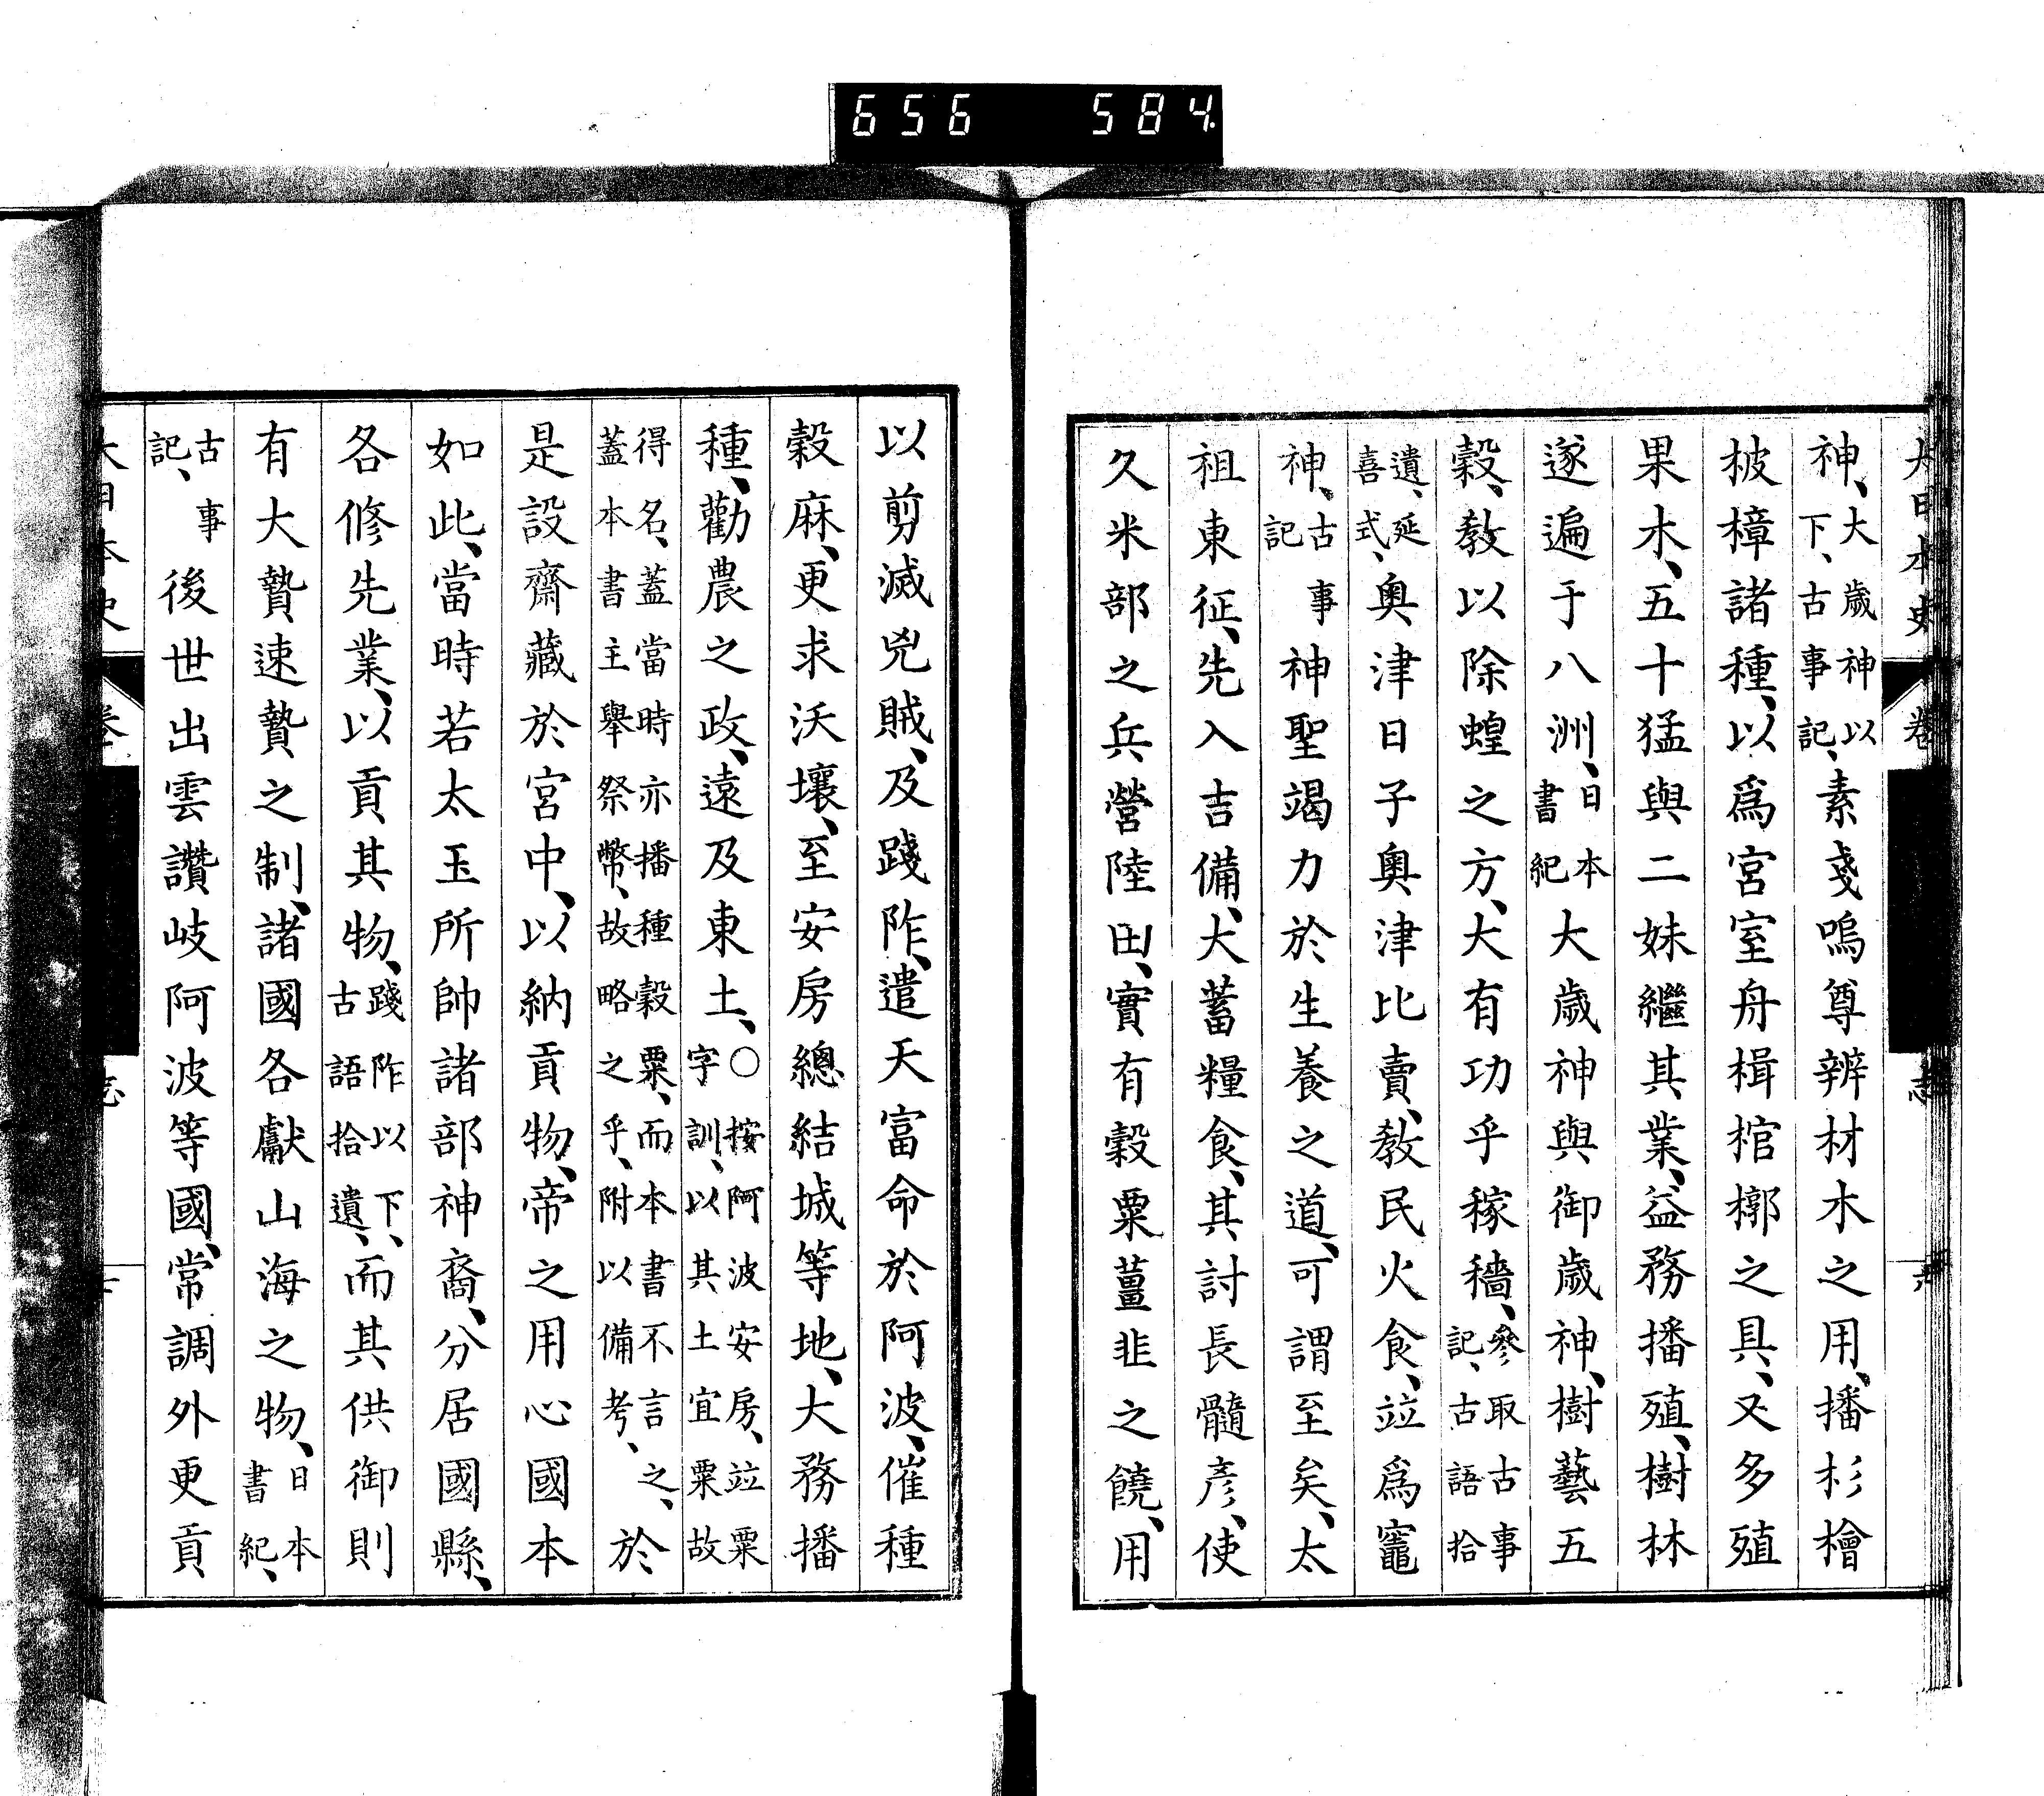 656 584
大日本史 卷 志 六
神、大歲神以下、古事記、素戔嗚尊辨材木之用、播杉檜
柀樟諸種、以爲宮室舟楫棺槨之具、又多殖
果木、五十猛與二妹繼其業、益務播殖、樹林
遂遍于八洲、日本書紀大歲神與御歲神、樹藝五
穀、敎以除蝗之方、大有功乎稼穡、參取古事記、古語拾
遺、延喜式、奧津日子奧津比賣、敎民火食、竝爲竈
神、古事記神聖竭力於生養之道、可謂至矣、太
祖東征、先入吉備、大蓄糧食、其討長髓彥、使
久米部之兵營陸田、實有穀粟薑韭之饒、用
以剪滅兇賊、及踐阼、遣天富命於阿波、催種
穀麻、更求沃壤、至安房總結城等地、大務播
種、勸農之政、遠及東土、○按阿波安房、竝粟字訓、以其土宜粟故
得名、蓋當時亦播種穀粟、而本書不言之、蓋本書主擧祭幣、故略之乎、附以備考、於
是設齋藏於宮中、以納貢物、帝之用心國本
如此、當時若太玉所帥諸部神裔、分居國縣、
各修先業、以貢其物、踐阼以下、古語拾遺、而其供御則
有大贄速贄之制、諸國各獻山海之物、日本書紀、
古事記、後世出雲讚岐阿波等國、常調外更貢
大日本史 卷 志 七